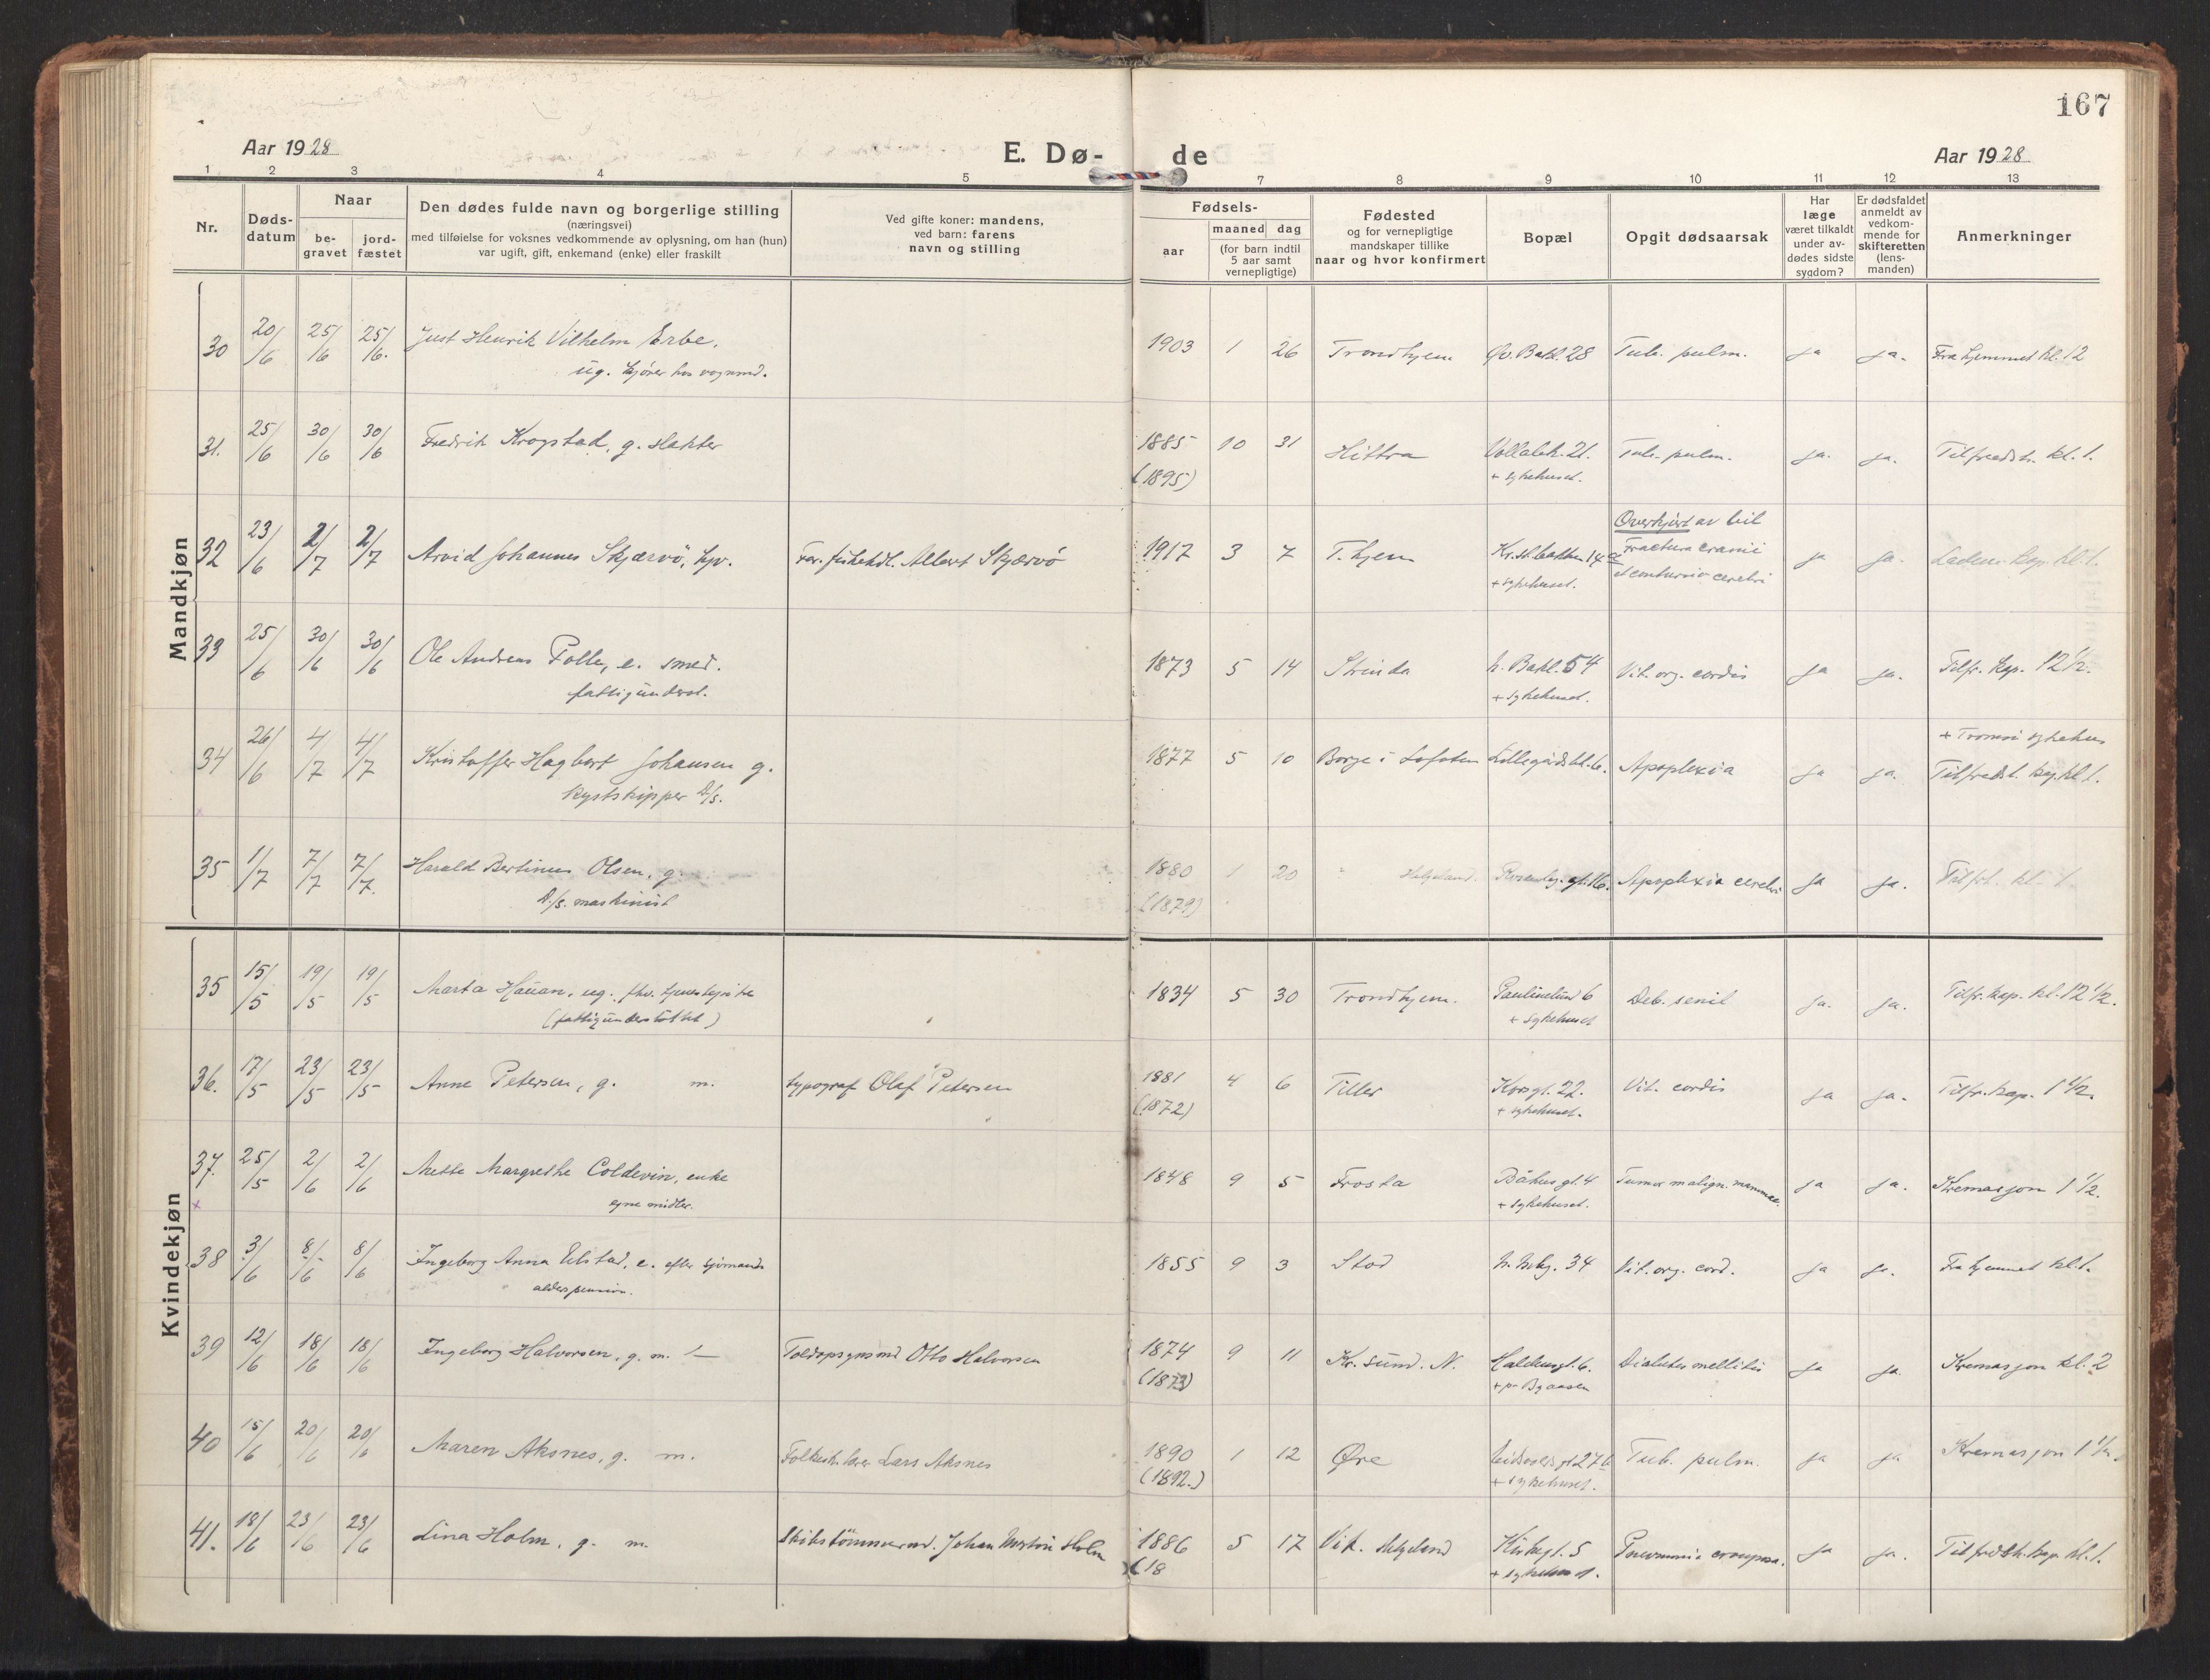 167
Aar 1928
E. Dø-
de
Aar 1928
1 2 3 4 5 7 8 9 10 11 12 13
Nr.
Døds-
datum
Naar
be-
gravet
jord-
fæstet
Den dødes fulde navn og borgerlige stilling
(næringsvei)
med tilføielse for voksnes vedkommende av oplysning, om han (hun)
var ugift, gift, enkemand (enke) eller fraskilt
Ved gifte koner: mandens,
ved barn: farens
navn og stilling
Fødsels-
aar
maaned dag
(for barn indtil
5 aar samt
vernepligtige)
Fødested
og for vernepligtige
mandskaper tillike
naar og hvor konfirmert
Bopæl
Opgit dødsaarsak
Har
læge
været tilkaldt
under av-
dødes sidste
sygdom?
Er dødsfaldet
anmeldt av
vedkom-
mende for
skifteretten
(lens-
manden)
Anmerkninger
Mandkjøn
30 20/6 25/6 25/6. Just Henrik Vilhelm Erbe. 1903 1 26 Trondhjem Øv. Bakl. 28 Tub. pulm. ja ja. Fra hjemmet kl. 12
ug. kjører hos vognmd.
31. 25/6 30/6 30/6 Fredrik Krogstad, g. slakter 1885 10 31 Hittra 21. Tub. pulm. ja. ja. kl. 1.
(1895) + sykehuset.
Overkjørt av bil
32 23/6 2/7 2/7 Arvid Johannes Skjærvö, hjv. Far. fiskehdl. Albert Skjærvö 1917 3 7 T.hjem Kr.st.bakken 14 Fractura cranii ja ja. Ladem. kap. kl. 1.
+ sykehuset. et contusio cerebri
33 25/6 30/6 30/6 Ole Andreas Folle, e. smed. 1873 5 14 Strinda n. Bakl. 54 Vit. org. cordis ja ja. Tilfr. kap. 12 1/2.
fattigunderst. + sykehuset.
+ Tromsö sykehus
34 26/6 4/7 4/7 Kristoffer Hagbart Johansen g. 1877 5 10 Borge i Lofoten Lillegårdsbk. 6. Apoplexia ja ja. Tilfredst. kap. kl. 1.
kystskipper D/s.
x
35 1/7 7/7 7/7. Harald Bertinus Olsen, g. 1880 1 20 Helgeland. Rosenbg. gt. 16. Apoplexia cerebri ja ja. Tilfrt. kl. 1.
D./s. maskinist (1879)
Kvindekjøn
35 15/5 19/5 19/5 Marta Hauan, ug. fhv. tjenestepike 1834 5 30 Trondhjem. Paulinelund 6 Deb. senil ja. ja. Tilfr. kap. kl. 12 1/2.
(fattigunderstöttet) + sykehuset
36. 17/5 23/5 23/5 Anne Petersen, g. m. typograf Olaf Petersen 1881 4 6 Tiller Korsgt. 22. Vit. cordis ja ja. Tilfr. kap. 1 1/2.
(1872) + sykehuset.
37. 25/5 2/6 2/6 Mette Margrethe Coldevin, enke 1848 9 5 Frosta Båhusgt. 4 Tumor malign. mammae. ja ja. Kremasjon 1 1/2.
x egne midler. + sykehuset.
38 3/6 8/6 8/6 Ingeborg Anna Elstad, e. efter sjömand 1855 9 3 Stod 34 Vit. org. cord. ja ja. Fra hjemmet kl. 1.
alderspension.
39 12/6 18/6 18/6 Ingeborg Halvorsen, g. m. Toldopsynsmd Otto Halvorsen 1874 9 11 Kr. sund. N. Haldensgt. 6. Diabetes mellitus ja ja Kremasjon kl. 2
(1873) + p. Byaasen
40 15/6 20/6 20/6 Maren Aksnes, g. m. Folkesk.lærer Lars Aksnes 1890 1 12 Øre Eidsvolds gt 27b Tub. pulm. ja ja Kremasjon 1 1/2.
(1892.) + sykehuset.
41. 18/6 23/6 23/6 Lina Holm, g. m. Skibstömmermd. Johan Martin Holm 1886 5 17 Vik. Helgeland Kirkegt. 5 Pneumonia crouposa. ja ja. Tilfredsh. kap. kl. 1.
(18 + sykehuset.